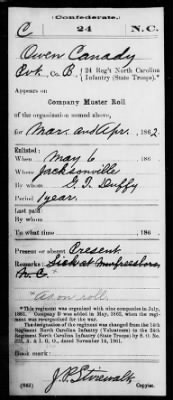 (Confederate.)
C 24 N.C.
Owen Canady
Pvt., Co. B, { 24 Reg't North Carolina
Infantry (State Troops).*
Appears on
Company Muster Roll
of the organization named above,
for Mar. and Apr., 1862.
Enlisted:
When May 6, 186
Where Jacksonville
By whom G. T. Duffy
Period 1 year.
Last paid:
By whom
To what time , 186 .
Present or absent Present.
Remarks: Sick at Murfreesboro,
N. C.
"As on roll.
*This regiment was organized with nine companies in July,
1861. Company B was added in May, 1862, when the regi-
ment was reorganized for the war.
The designation of the regiment was changed from the 14th
Regiment North Carolina Infantry (Volunteers) to the 24th
Regiment North Carolina Infantry (State Troops) by S. O. No.
222, A. & I. G. O., dated November 14, 1861.
Book mark:
(642) J. P. Stirewalt
Copyist.